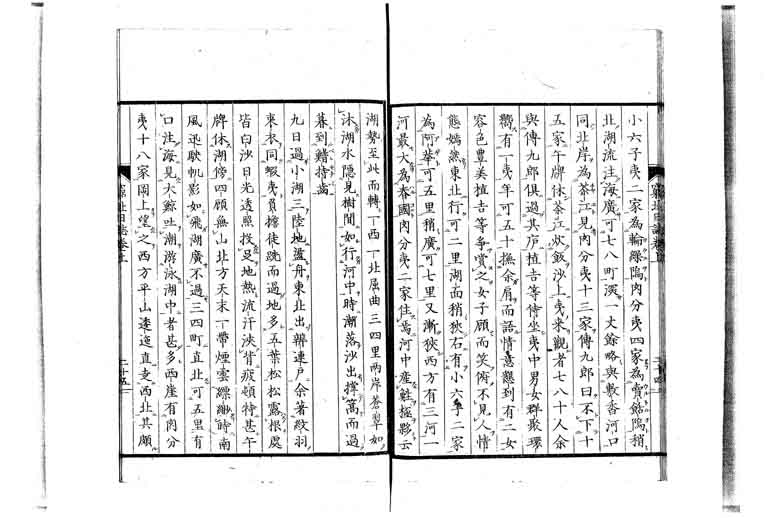 小六子夷二家為輪縁鴟肉分夷四家為賣舘鴟稍
北湖流注海廣可七八町深一丈餘略與敷香河口
同北岸為荅江見肉分夷十三家傳九郎曰不下十
五家午牌休荅江炊飯沙上夷来觀者七八十人余
與傳九郎俱過其庐植吉等倚坐夷中男女群聚環
有一夷年可五十撫余肩而語情意懇到有二女
容色豐美植吉等爭賞之女子顧而笑俯不見人情
態嫣然東北行可二里湖面稍狹右有小六子二家
為阿華可五里稍廣可七里又漸狹西方有三河一
河最大為春國肉分夷二家住焉河中産鮏極夥云
湖勢至此而轉一西一北屈曲三四里兩岸蒼翠如
沐湖水隱見樹間如行河中時漸落沙出撑篙而過
暮到鱈待
九日過小湖三陸地盪舟東北出辨連戸余著紋羽
来衣同蝦夷員擔徒跣而過地多五葉松松露根處
皆白沙日光透照投足地熱流汗浹背疲頓特甚午
牌休湖傍四顧無山北方天末一帶煙雲縹緲時南
風迅駛帆影如飛湖廣不過三四町直北可五里有
口注海見大鯨吐潮游泳湖中者甚多西崖有肉分
夷十八家岡上望之西方平山逶迤直支西北其頗